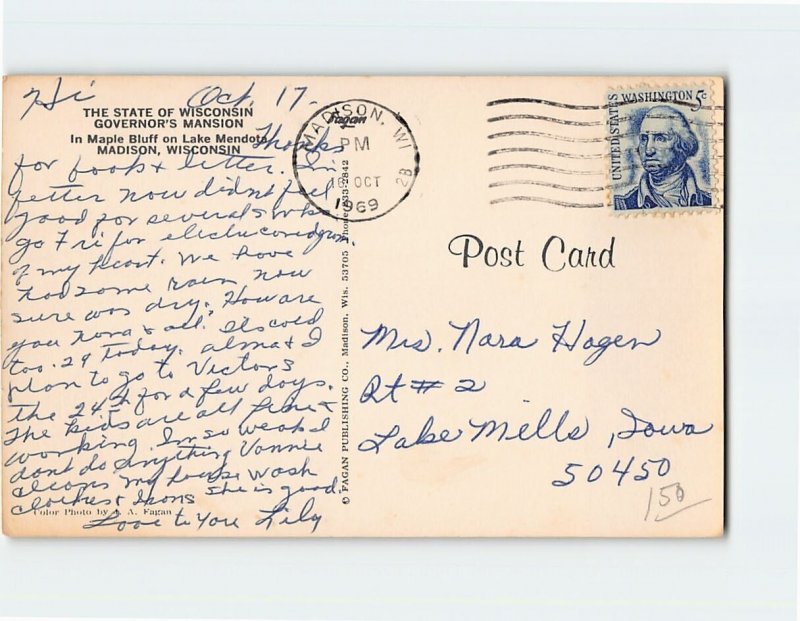 Hi Oct. 17.
THE STATE OF WISCONSIN
GOVERNOR'S MANSION
In Maple Bluff on Lake Mendota
MADISON, WISCONSIN
Thanks
for book & letter. Im
better now didn't feel
good for several wks
go Fri for electrocardiogram.
of my heart. We have
had some rain now
sure was dry. How are
you Nora & all. Its cold
too. 29 today. Alma & I
plan to go to Victors
the 24th for a few days.
The kids are all fine &
working. Im so weak I
dont do anything Vonnie
cleans my house wash
clothes & Irons she is good
Love to You Lily
Color Photo by A. Fagan
© FAGAN PUBLISHING CO., Madison, Wis. 53705 Phone 233-2842
Fagan
MADISON, WI
PM
16 OCT
1969
28
UNITED STATES
WASHINGTON 5c
Post Card
Mrs. Nora Hagen
Rt # 2
Lake Mills, Iowa
50450
150